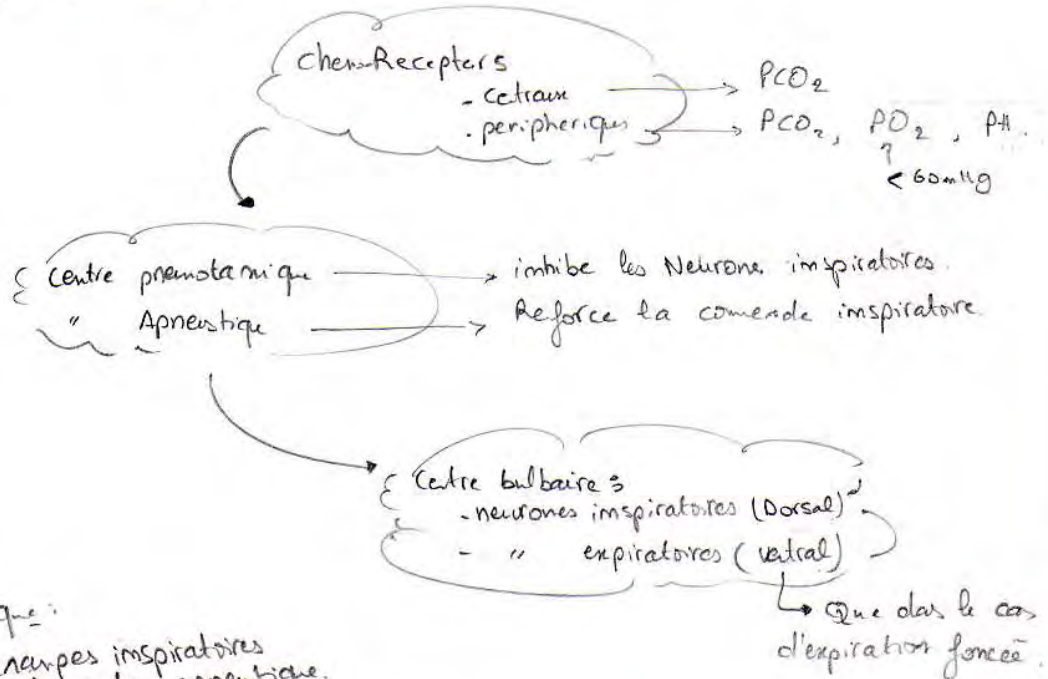 ChemoRecepters
- Cetraux → PCO2
- peripheriques → PCO2, PO2, PH.
< 60mmHg
Centre pnemotamique → imhibe les Neurone imspiratoires.
" Apneustique → Reforce la comende imspiratoire.
Centre bulbaire :
- neurones imspiratoires (Dorsal)
- " expiratoires (vatral)
Que das le cas
d'expiration forcée.
imspiratoires